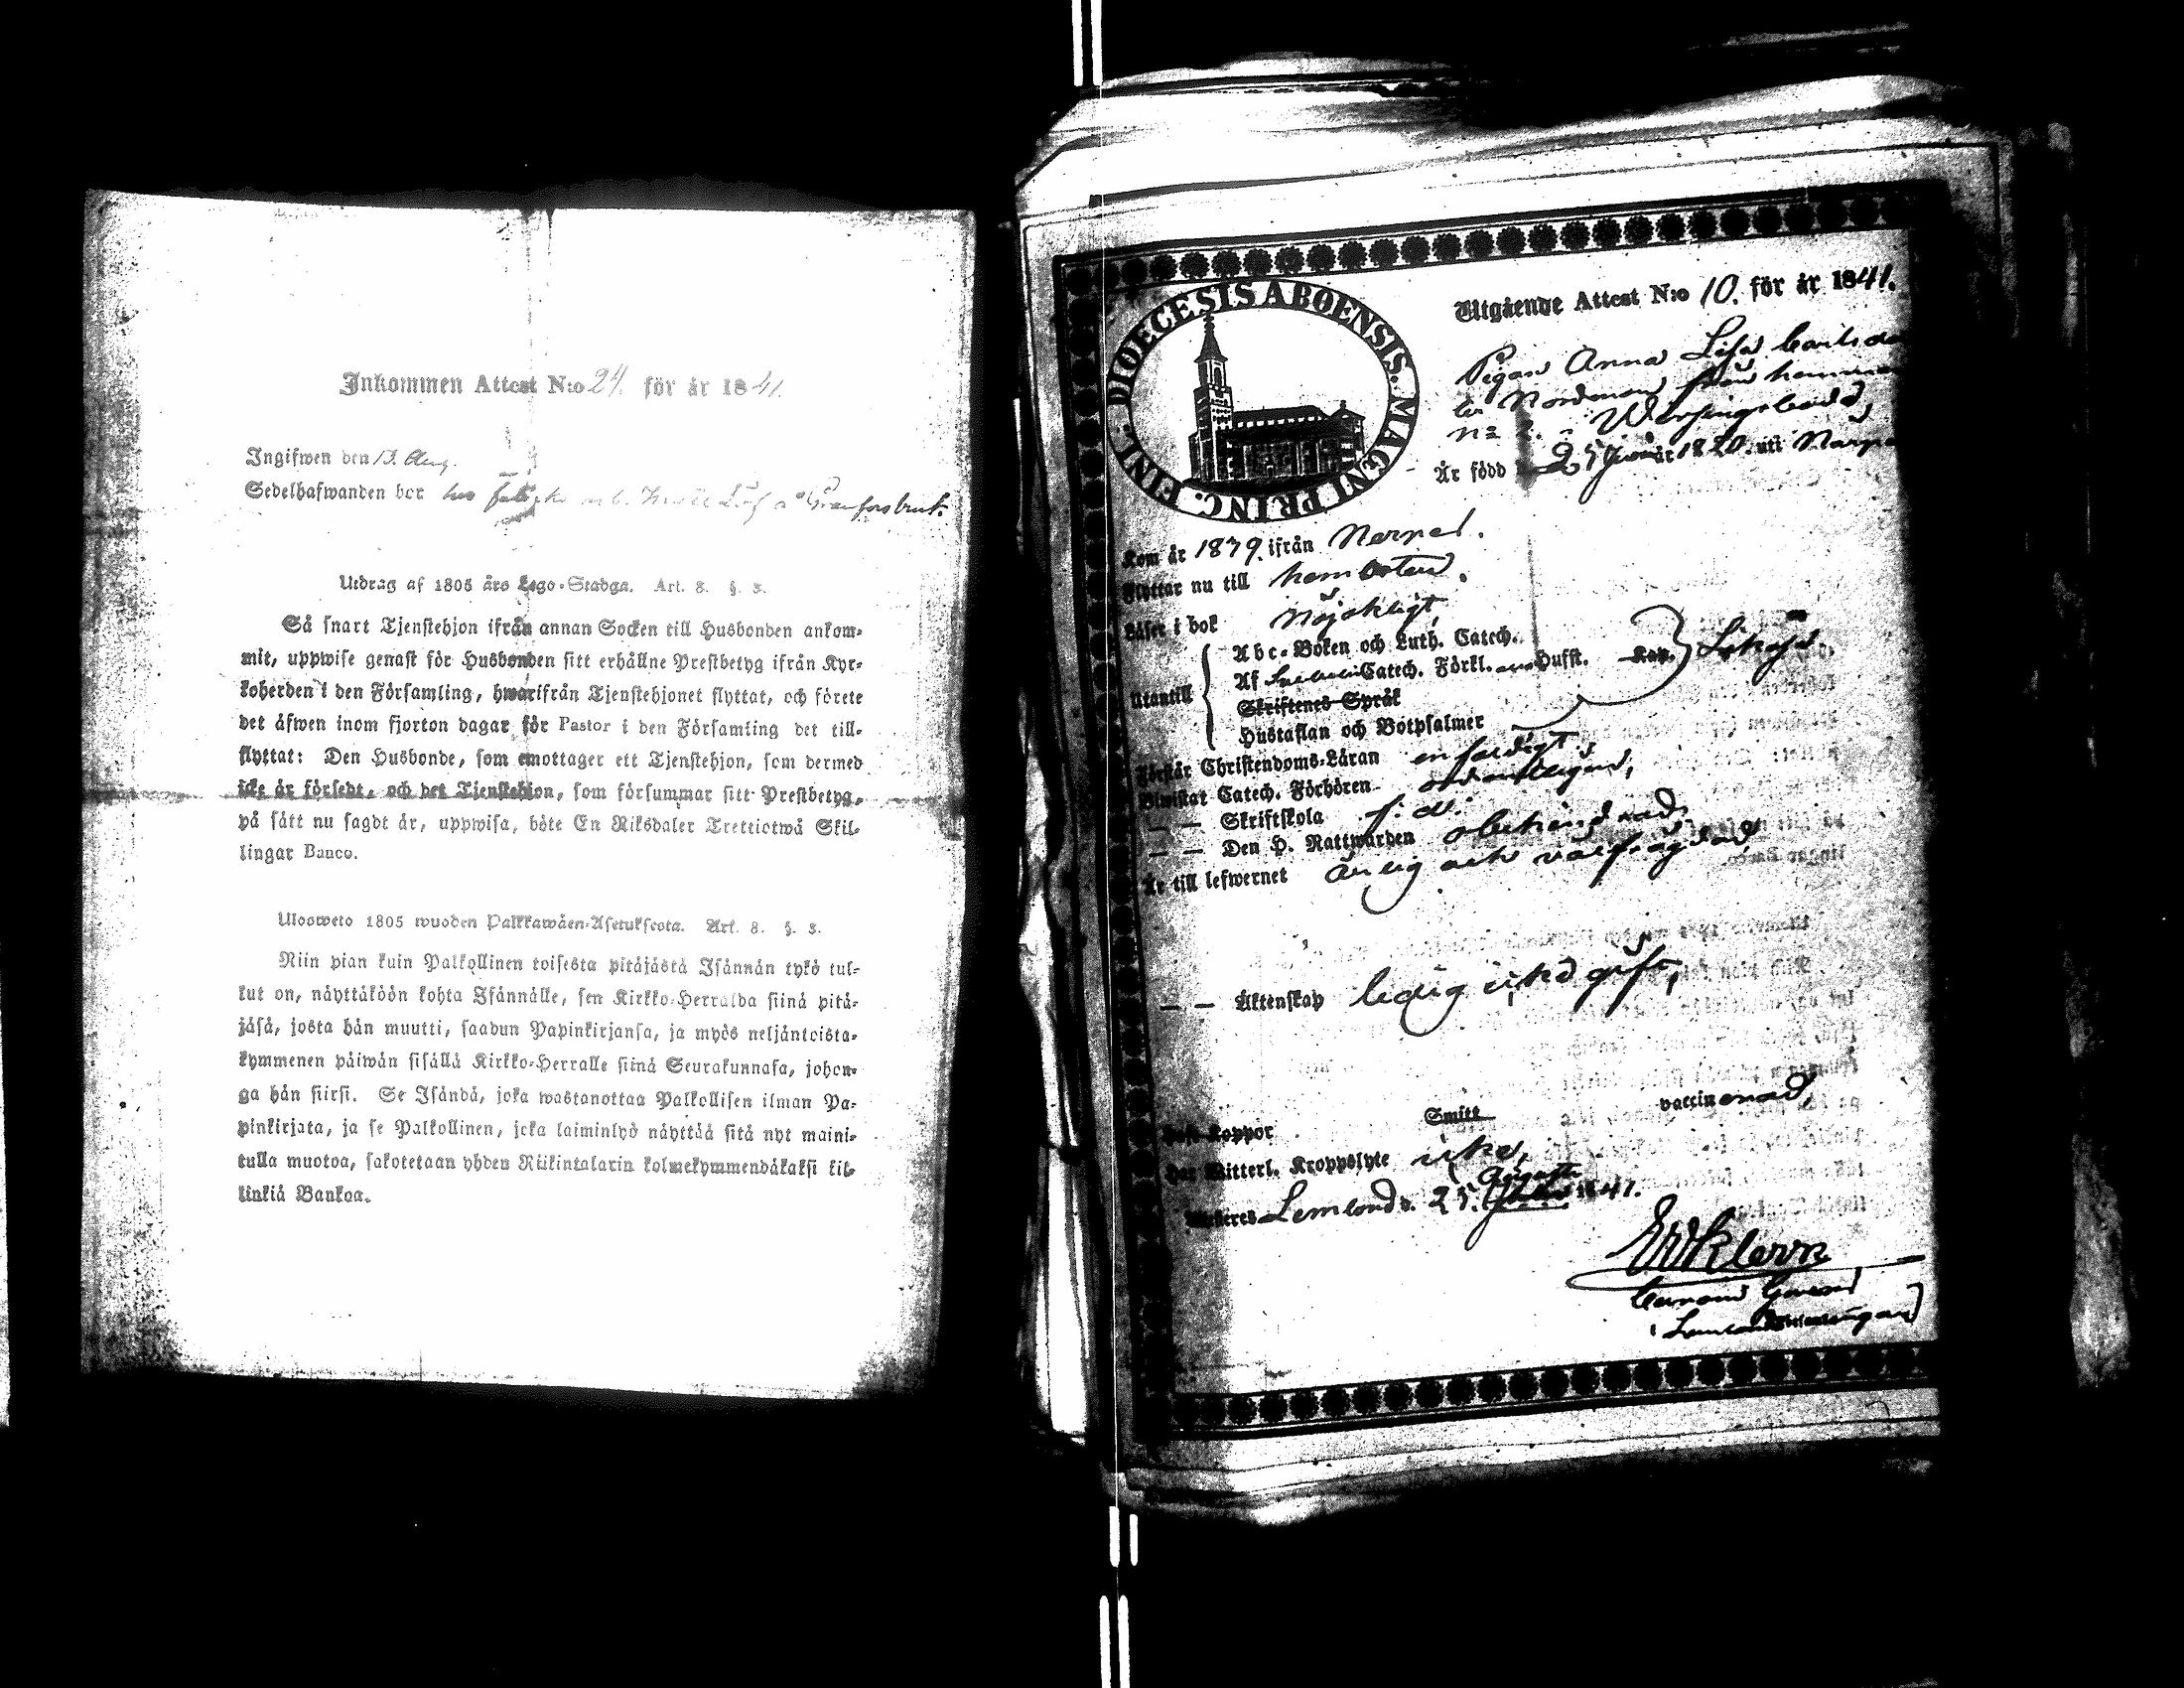 Inkommen Attest N:o 24. för år 1841.
Ingifwen den 13. Aug.
Sedelhafwanden bor hos
Utdrag af 1805 års Lego-Stadga. Art. 8. §. 3.
Så snart Tjenstehjon ifrån annan Socken till Husbonden ankom-
mit, uppwise genast för Husbonden sitt erhållne Prestbetyg ifrån Kyr-
koherden i den Församling, hwarifrån Tjenstehjonet flyttat, och förete
det äfwen inom fjorton dagar för Pastor i den Församling det till-
flyttat: Den Husbonde, som emottager ett Tjenstehjon, som dermed
icke är försedt, och det Tjenstehjon, som försummar sitt Prestbetyg,
på sätt nu sagdt är, uppwisa, böte En Riksdaler Trettiotwå Skil-
lingar Banco.
Ulosweto 1805 wuoden Palkkawäen-Asetuksesta. Art. 8. §. 3.
Niin pian kuin Palkollinen toisesta pitäjästä Isännän tykö tul-
lut on, näyttäköön kohta Isännälle, sen Kirkko-Herralda siinä pitä-
jäsä, josta hän muutti, saadun Papinkirjansa, ja myös neljäntoista-
kymmenen päiwän sisällä Kirkko-Herralle siinä Seurakunnasa, johon-
ga hän siirsi. Se Isändä, joka wastanottaa Palkollisen ilman Pa-
pinkirjata, ja se Palkollinen, joka laiminlyö näyttää sitä nyt maini-
tulla muotoa, sakotetaan yhden Riikintalarin kolmekymmendäkaksi kil-
linkiä Bankoa.
DIOECESIS ABOENSIS. MAGNI PRINC. FINL.
Utgående Attest N:o 10. för år 1841.
Pigan Anna Lisa Carlsdo
Nordman från hemman
n:o 2.
Är född 25 år 1820. uti Närpe
Kom år 1839. ifrån Nerpes.
Flyttar nu till hemorten.
Läser i bok Nöjakligt,
Utantill
Abc-Boken och Luth. Catech.
Af Catech. Förkl. Husst. Kap.
Skriftenes Språk
Hustaflan och Botpsalmer
Likaså.
Förstår Christendoms-Läran enfaldigt.
Biwistat Catech. Förhören ordentligen,
— — Skriftskola f. d.
— — Den H. Nattwarden obehindrad.
Är till lefwernet ärlig och välfrägdad
— — Äktenskap ledig icke gift,
Haft Koppor Smitt vaccinerad,
Har Witterl. Kroppslyte icke,
Augusti
Attesteres Lemland d. 25. 1841.